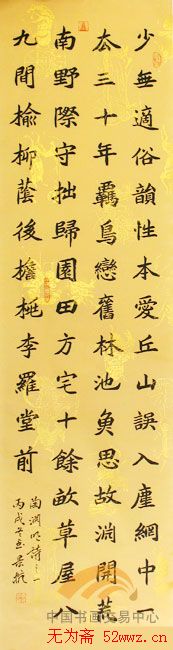 少無適俗韻性本愛丘山誤入塵網中一
去三十年羈鳥戀舊林池魚思故淵開荒
南野際守拙歸園田方宅十餘畝草屋八
九間榆柳蔭後檐桃李羅堂前
陶淵明詩之一
丙戌
中国书画交易中心
无为斋 52wwz.cn